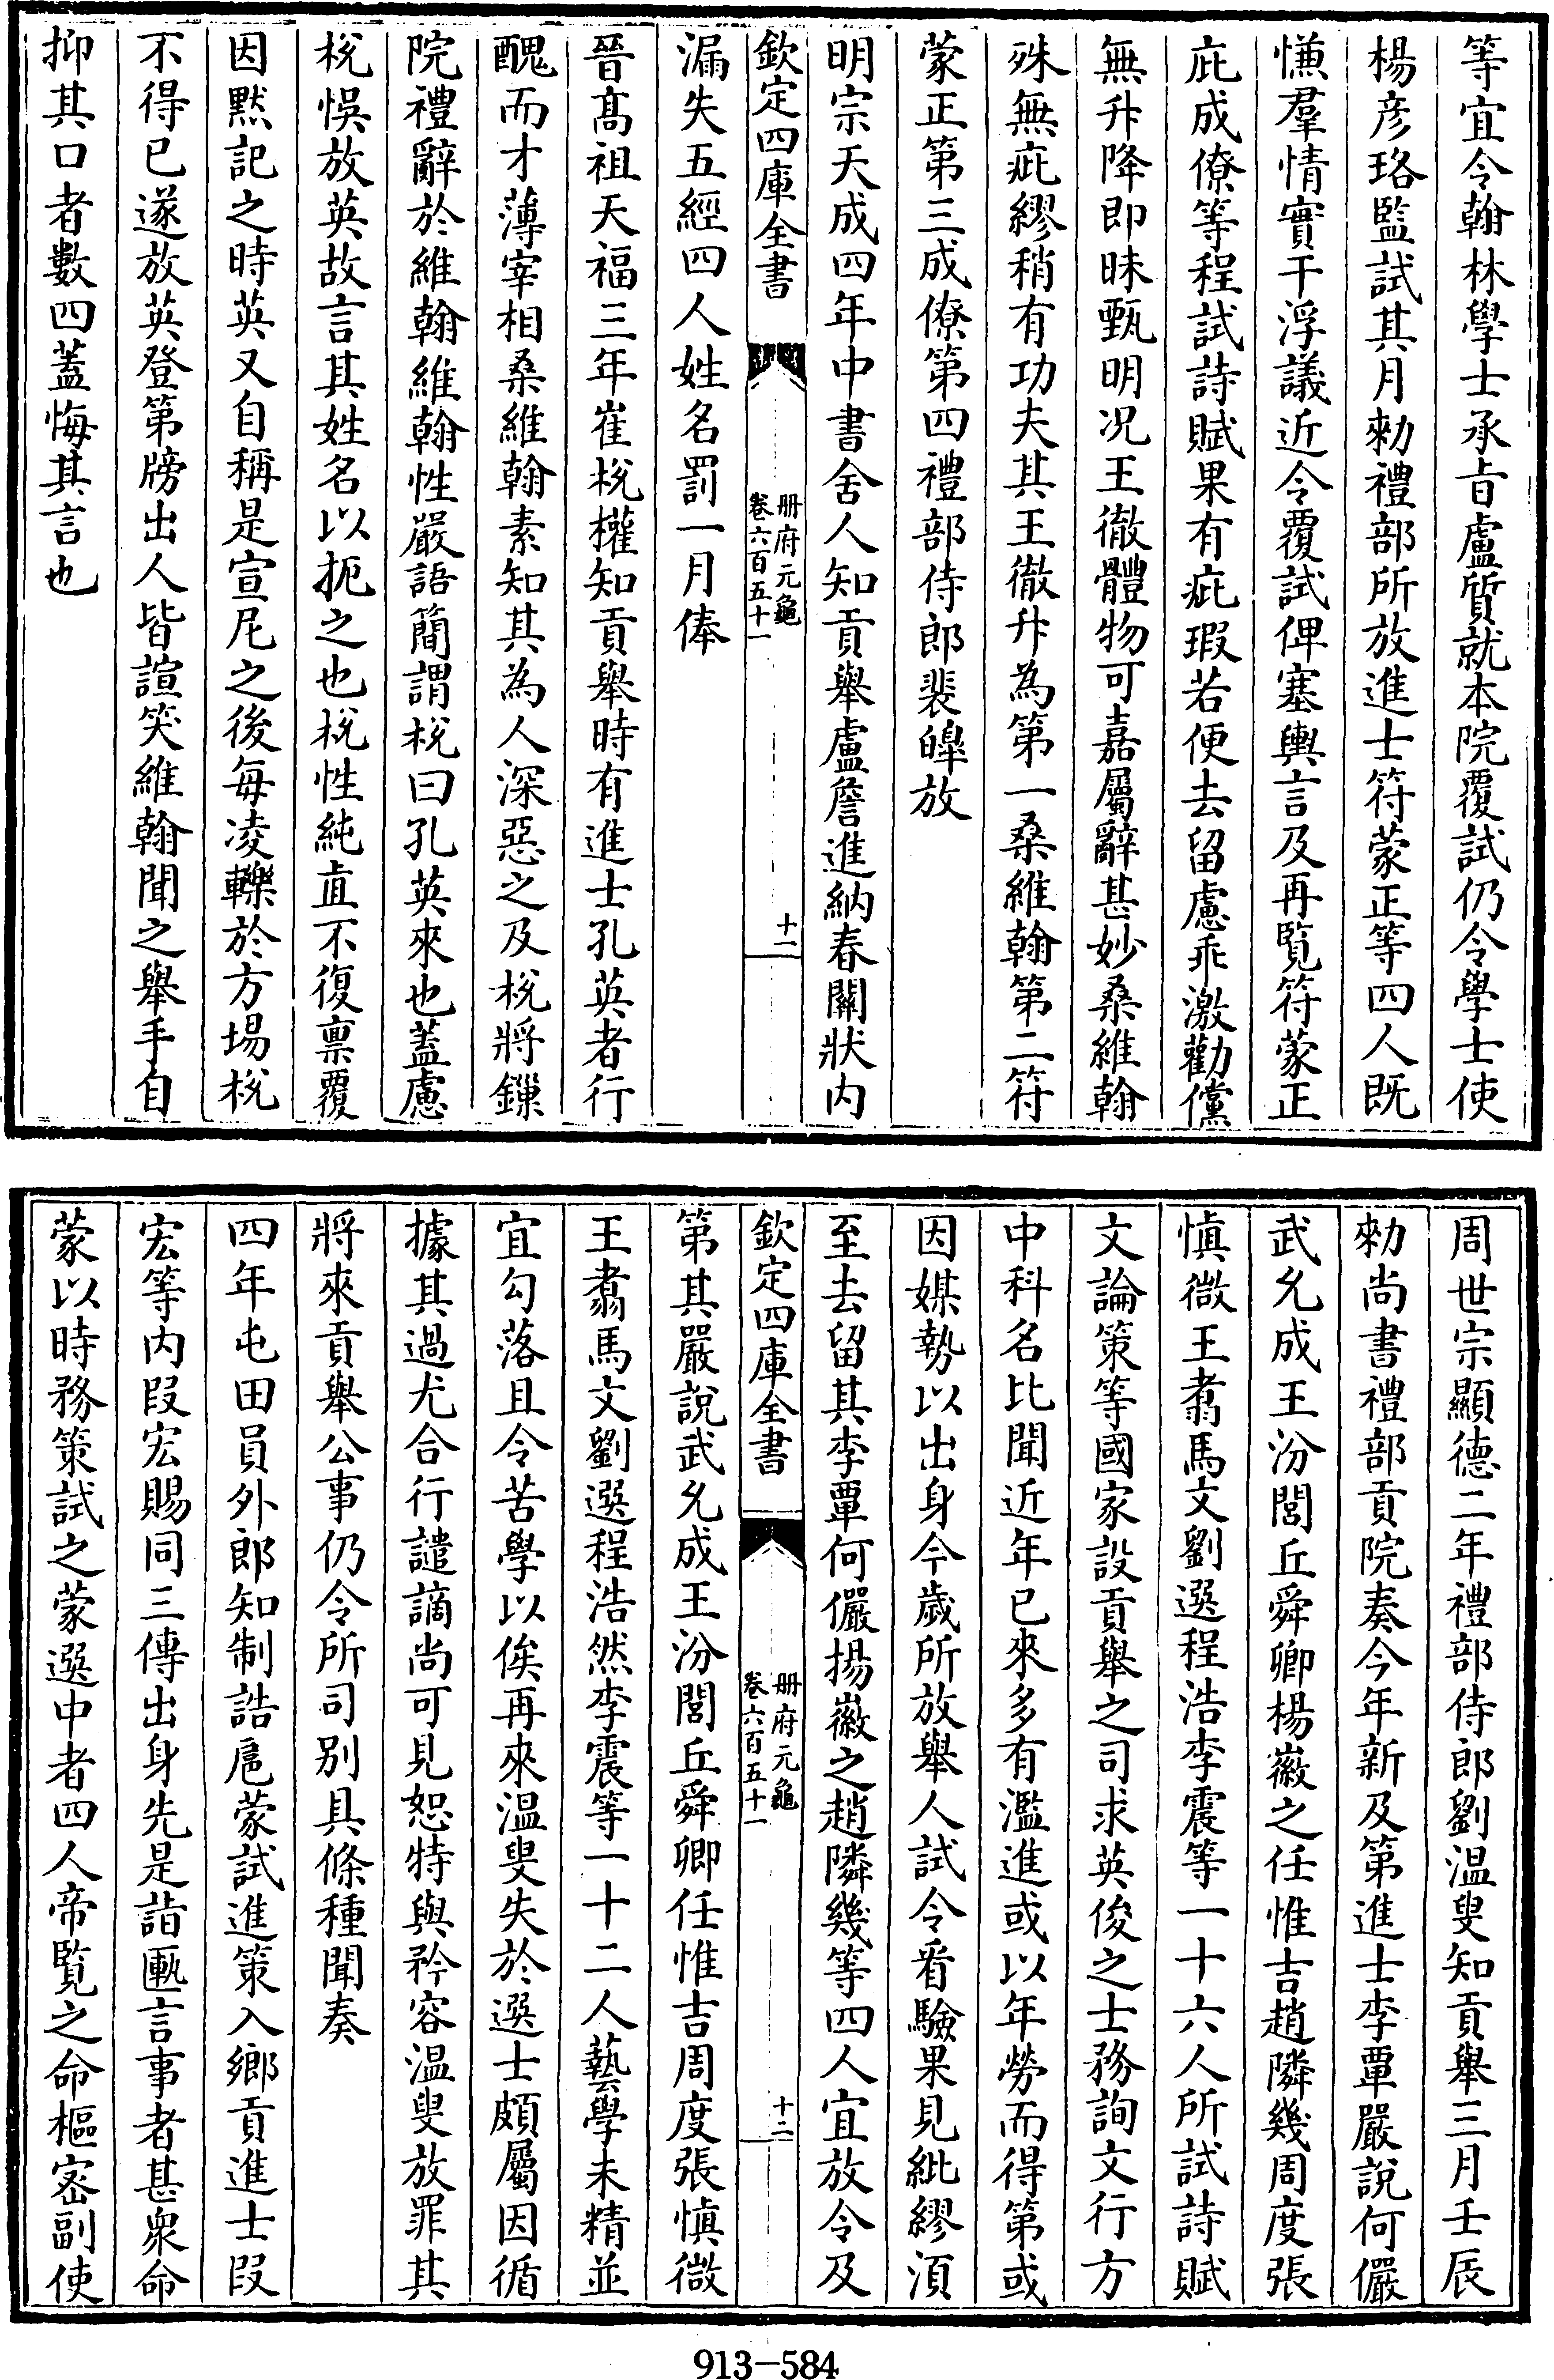 等宜令翰林學士承㫖盧質就本院覆試仍令學士使
楊彦珞監試其月勑禮部所放進士符蒙正等四人既
慊羣情實干浮議近令覆試俾塞輿言及再覧符蒙正
庇成僚等程試詩賦果有疵瑕若便去留慮乖激勸儻
無升降即昧甄明况王徹體物可嘉屬辭甚妙桑維翰
殊無疵繆稍有功夫其王徹升為第一桑維翰第二符
蒙正第三成僚第四禮部侍郎裴皥放
明宗天成四年中書舍人知貢舉盧詹進納春闗狀内
欽定四庫全書
册府元龜
卷六百五十一
十一
漏失五經四人姓名罰一月俸
晉髙祖天福三年崔梲權知貢舉時有進士孔英者行
醜而才薄宰相桑維翰素知其為人深惡之及梲將鏁
院禮辭於維翰維翰性嚴語簡謂梲曰孔英來也蓋慮
梲悞放英故言其姓名以扼之也梲性純直不復禀覆
因黙記之時英又自稱是宣尼之後每凌轢於方場梲
不得已遂放英登第牓出人皆諠笑維翰聞之舉手自
抑其口者數四蓋悔其言也
周世宗顯德二年禮部侍郎劉温叟知貢舉三月壬辰
勑尚書禮部貢院奏今年新及第進士李覃嚴説何儼
武允成王汾閭丘舜卿楊徽之任惟吉趙隣幾周度張
慎微王翥馬文劉選程浩李震等一十六人所試詩賦
文論策等國家設貢舉之司求英俊之士務詢文行方
中科名比聞近年已來多有濫進或以年勞而得第或
因媒勢以出身今歲所放舉人試令看驗果見紕繆湏
至去留其李覃何儼揚徽之趙隣幾等四人宜放令及
欽定四庫全書
册府元龜
卷六百五十一
十二
第其嚴説武允成王汾閭丘舜卿任惟吉周度張慎微
王翥馬文劉選程浩然李震等一十二人藝學未精並
宜勾落且令苦學以俟再來温叟失於選士頗屬因循
據其過尤合行譴謫尚可見恕特與矜容温叟放罪其
將來貢舉公事仍令所司别具條種聞奏
四年屯田員外郎知制誥扈蒙試進策入鄉貢進士段
宏等内段宏賜同三傳出身先是詣匭言事者甚衆命
蒙以時務策試之蒙選中者四人帝覧之命樞宻副使
913—584